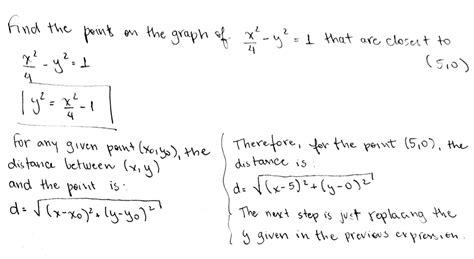 Find the points on the graph of x²/4 - y² = 1 that are closest to (5,0)
x²/4 - y² = 1
y² = x²/4 - 1
For any given point (x₀,y₀), the
distance between (x,y)
and the point is:
d = √((x-x₀)² + (y-y₀)²)
Therefore, for the point (5,0), the
distance is:
d = √((x-5)² + (y-0)²)
The next step is just replacing the
y given in the previous expression.